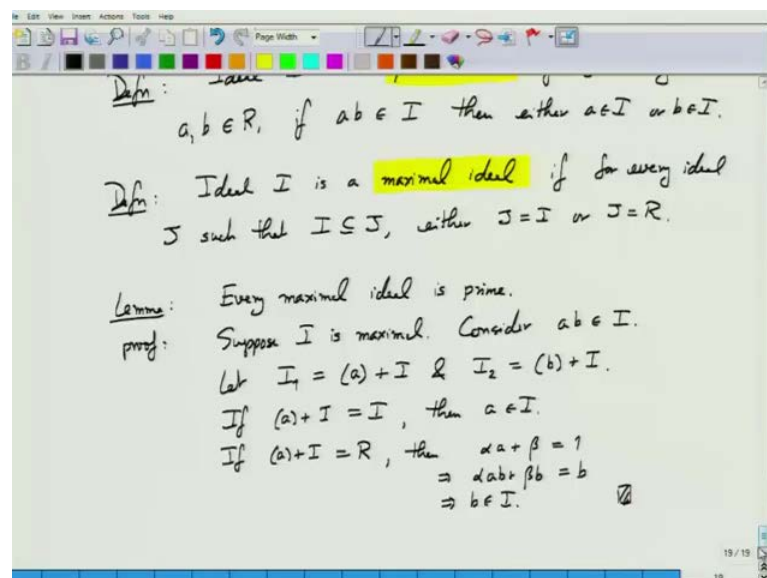 Edit View Insert Actions Tools Help
Page Width
Defn: Ideal I
a, b ∈ R, if ab ∈ I then either a ∈ I or b ∈ I.
Defn: Ideal I is a maximal ideal if for every ideal
J such that I ⊆ J, either J = I or J = R.
Lemma: Every maximal ideal is prime.
proof: Suppose I is maximal. Consider ab ∈ I.
Let I₁ = (a) + I & I₂ = (b) + I.
If (a) + I = I, then a ∈ I.
If (a) + I = R, then αa + β = 1
⇒ αab + βb = b
⇒ b ∈ I.
19 / 19
19